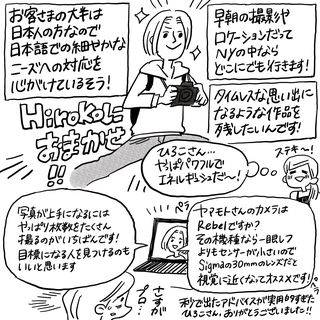 お客さまの大半は
日本人の方なので
日本語での細やかな
ニーズへの対応を
心がけているそう!
早朝の撮影や
ロケーションだって
NYの中なら
どこにでも行きます!
タイムレスな思い出に
なるような作品を
残したいんです!
Hirokoに
おまかせ
!!
ひろこさん…
やっぱパワフルで
エネルギッシュだ〜!
ステキ〜!
写真が上手になるには
やっぱり枚数をたくさん
撮るのがいちばんです!
目標になる人を見つけるのも
いいと思います
ヤマモトさんのカメラは
Rebelですか?
その機種なら一眼レフ
よりもセンサーが小さいので
Sigmaの30mmのレンズだと
視覚に近くなってオススメです!
さすが
プロ…
秒で出たアドバイスが実用的すぎた
ひろこさん、ありがとうございました!!